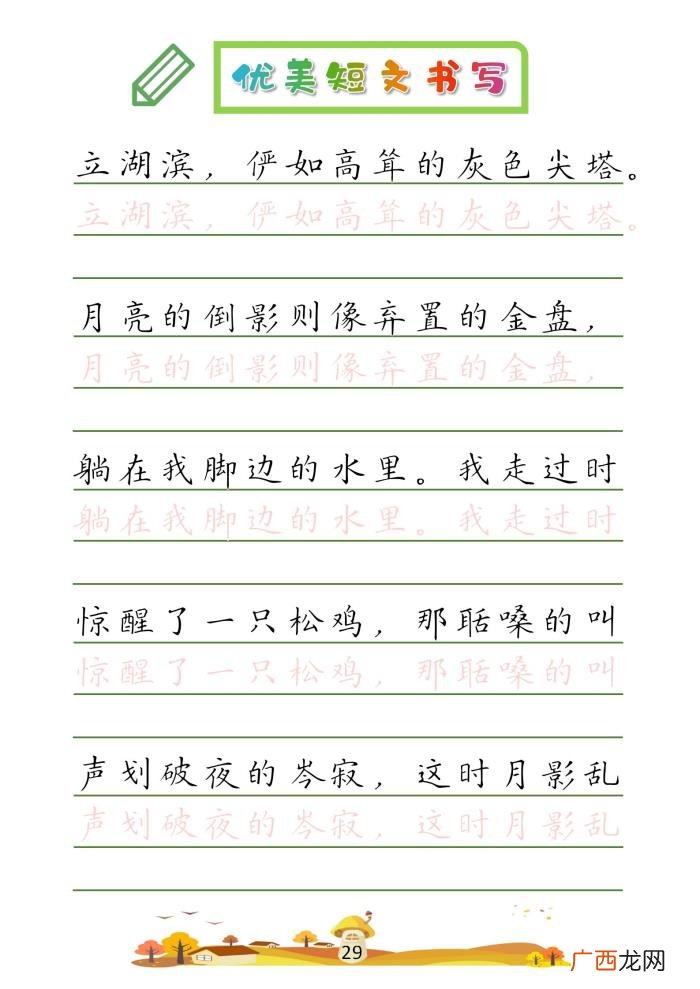 优美短文书写
立湖滨，俨如高耸的灰色尖塔。
立湖滨，俨如高耸的灰色尖塔。
月亮的倒影则像弃置的金盘，
月亮的倒影则像弃置的金盘，
躺在我脚边的水里。我走过时
躺在我脚边的水里。我走过时
惊醒了一只松鸡，那聒嗓的叫
惊醒了一只松鸡，那聒嗓的叫
声划破夜的岑寂，这时月影乱
声划破夜的岑寂，这时月影乱
29
广西龙网